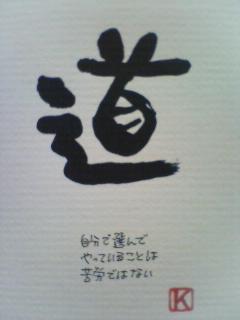 道
自分で選んで
やっていることは
苦労ではない
K